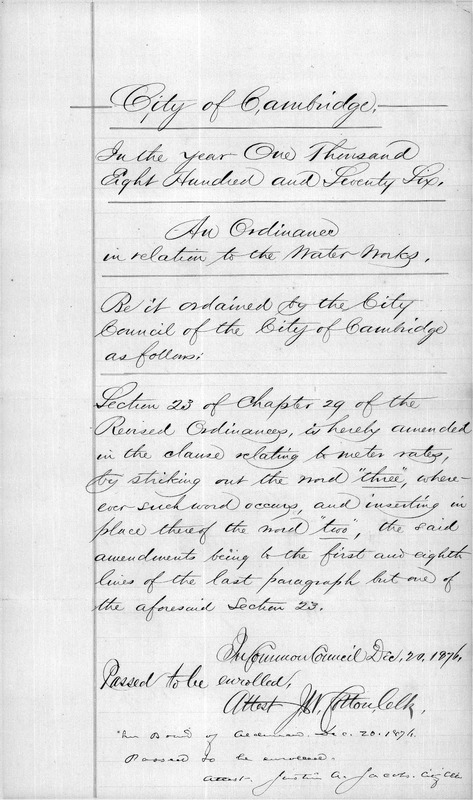 City of Cambridge.
In the year One Thousand
Eight Hundred and Seventy Six.
An Ordinance
in relation to the Water Works.
Be it ordained by the City
Council of the City of Cambridge
as follows:
Section 23 of Chapter 29 of the
Revised Ordinances, is hereby amended
in the clause relating to meter rates,
by striking out the word "three", where-
ever such word occurs, and inserting in
place thereof the word "two", the said
amendments being to the first and eighth
lines of the last paragraph but one of
the aforesaid Section 23.
In Common Council Dec. 20, 1876.
Passed to be enrolled,
Attest J. W. Cotton, Clk,
In Board of Aldermen. Dec. 20. 1876.
Passed to be enrolled.
Attest. Justin A. Jacobs. City Clk